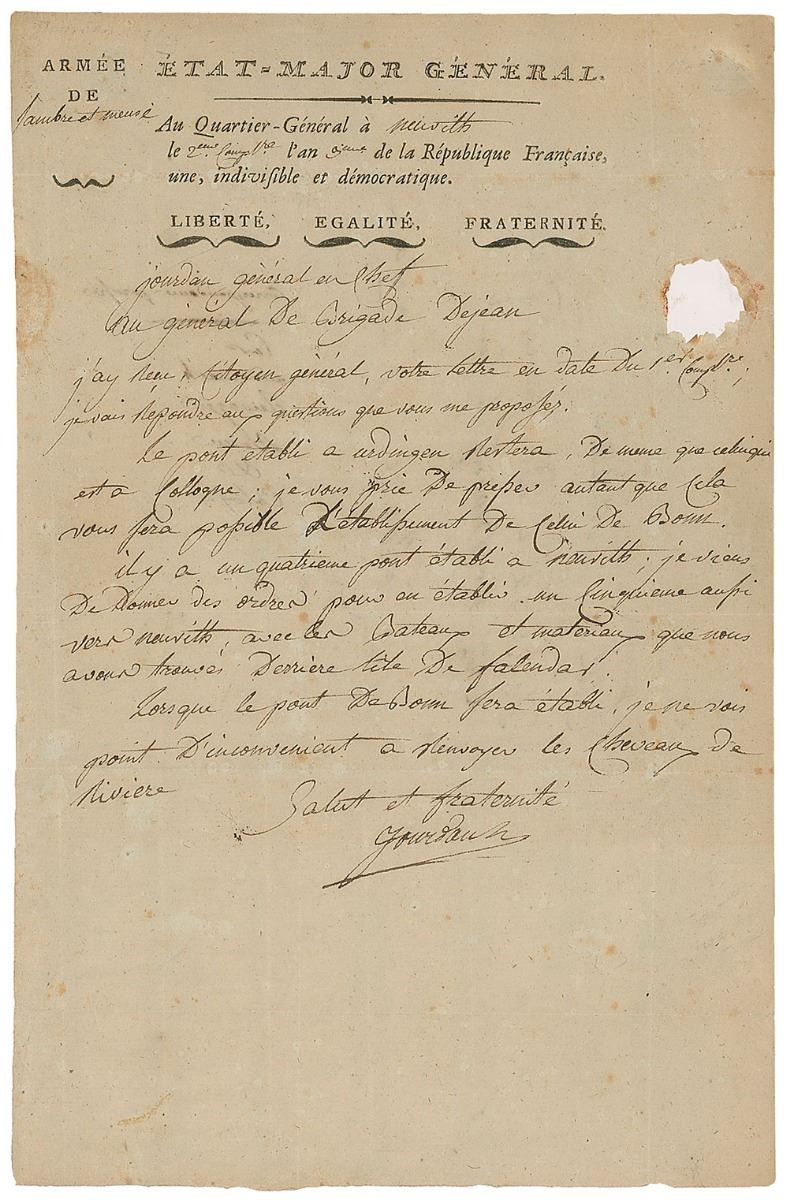 ARMÉE
DE
Sambre et meuse
ÉTAT-MAJOR GÉNÉRAL.
Au Quartier-Général à neuvith
le 2eme Compre l'an 3eme de la République Françaiſe,
une, indiviſible et démocratique.
LIBERTÉ, EGALITÉ, FRATERNITÉ.
jourdan général en Chef
au général De Brigade Dejean
j'ay Recu, Citoyen général, votre lettre en date Du 1.er Compre;
je vais Repondre aux questions que vous me proposéz.
Le pont établi a urdingen Restera, De meme que celui qui
est a Collogne; je vous prie De presser autant que Cela
vous sera possible L'établissement De Celui De Bonn.
il y a un quatrieme pont établi a neuvith. je viens
De Donner des ordres pour en établir un Cinquieme aussi
vers neuvith, avec les Bateaux et materiaux que nous
avons trouvés Derriere l'ile De falendar.
Lorsque le pont De Bonn sera établi, je ne vois
point D'inconvenient a Renvoyer les Cheveaux de
Riviere
Salut et fraternité
Jourdan